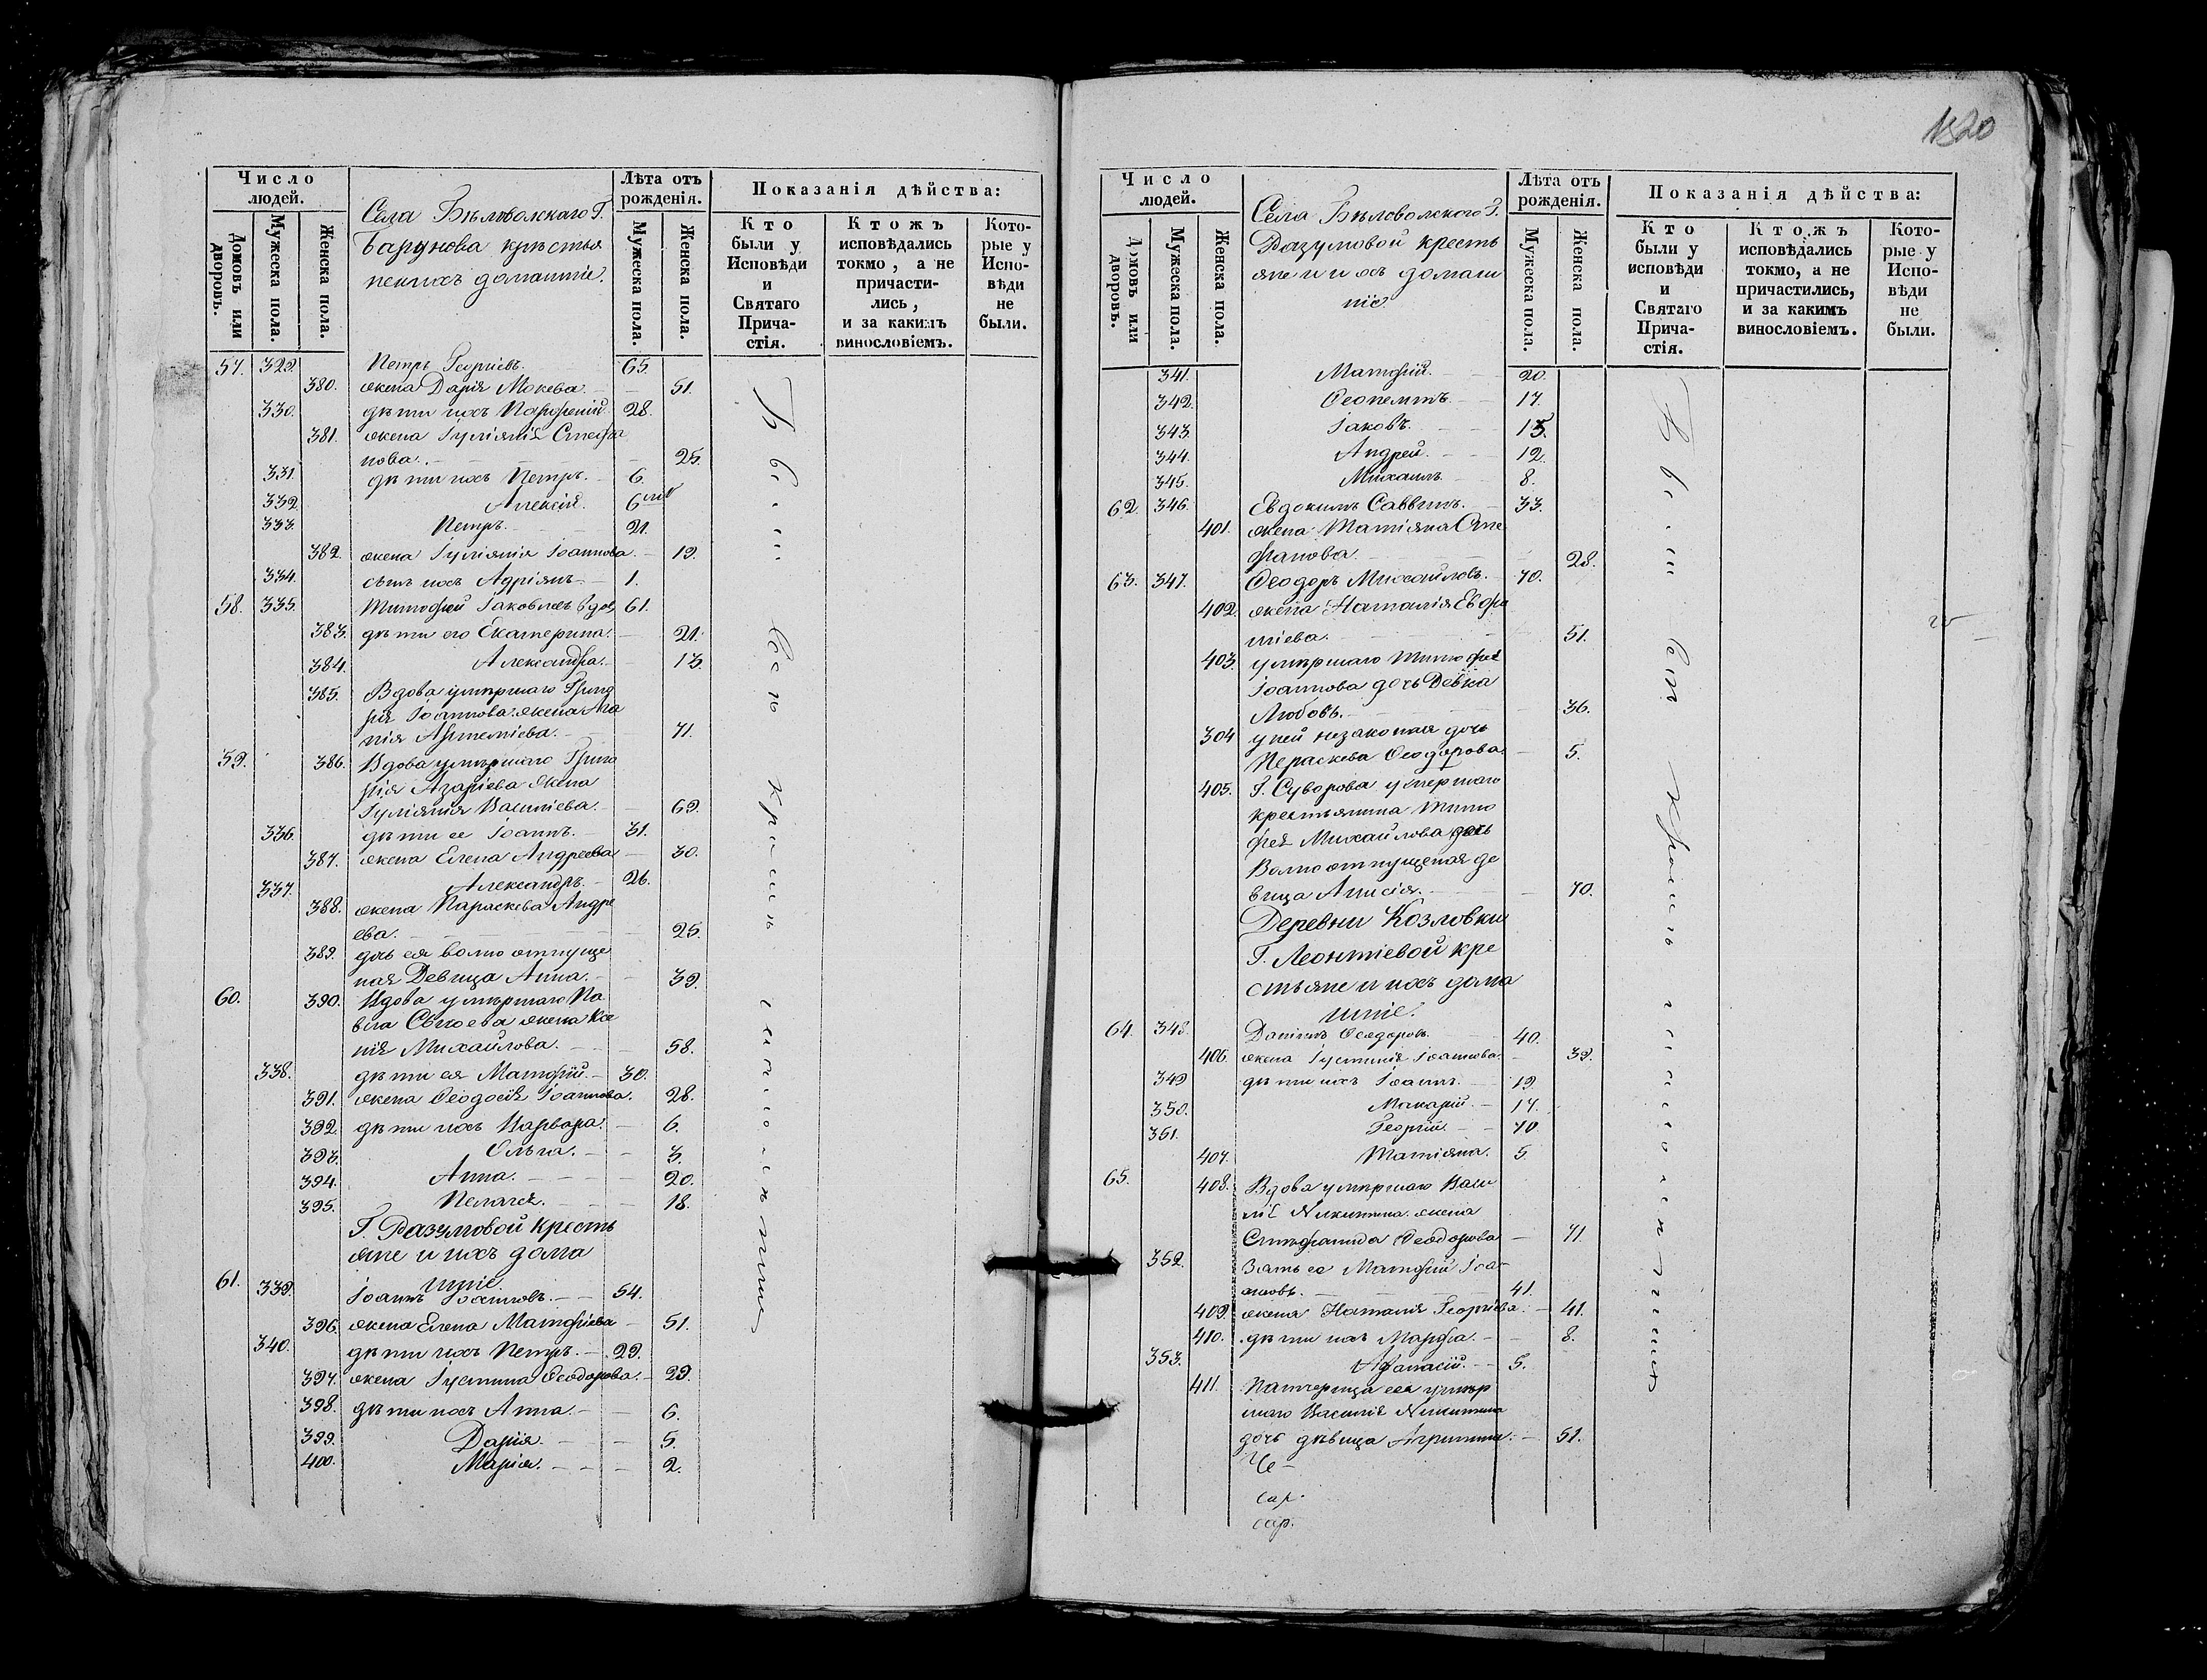 1820
Число людей.
Домовъ или дворовъ.
Мужеска пола.
Женска пола.
Села Бѣловолскаго Г.
Барунова крѣстья
Лѣта отъ рожденія.
Мужеска пола.
Женска пола.
Показанія дѣйства:
Кто были у Исповѣди и Святаго Прича-стія.
Ктожъ исповѣдались токмо, а не причасти-лись, и за какимъ винословіемъ.
Кото-рые у Испо-вѣди не были.
57. 329. Петръ Георгіевъ. 65.
380. жена Дарія Мокева. 51.
330. дѣти ихъ Парфеній. 28.
381. жена Іуліянія Стефа
нова. 25.
331. дѣти ихъ Петръ. 6.
332. Алексій. 6
333. Петръ. 21.
382. жена Іуліянія Іоаннова. 19.
334. сынъ ихъ Адріянъ. 1.
58. 335. Тимофей Іаковлевъ вдов 61.
383. дѣти его Екатерина. 21.
384. Александра. 13
385. Вдова умершаго Григо
рія Іоаннова жена
нія Артеміева. 71.
59. 386. Вдова умершаго Григо
рія Азаріева жена
Іуліянія Василіева. 69.
336. дѣти ее Іоаннъ. 31.
387. жена Елена Андреева 30.
337. Александръ. 26.
388. жена Параскева Андре
ева. 25.
389. дочь ея волно отпуще
ная Девица Анна. 39.
60. 390. Вдова умершаго Па
вла жена Ксе
нія Михайлова. 58.
338. дѣти ея Матфій. 30.
391. жена Ѳеодосія Іоаннова. 28.
392. дѣти ихъ Варвара. 6.
393. Ольга. 3.
394. Анна. 20.
395. Пелагея. 18.
Г. Разумовой кресть
яне и ихъ дома
шніе
61. 339. Іоаннъ Іоанновъ. 54.
396. жена Елена Матфіева 51.
340. дѣти ихъ Петръ. 29.
397. жена Іустина Ѳеодорова. 29.
398. дѣти ихъ Анна. 6.
399. Дарія. 5.
400. Марія. 2.
Были всѣ
Число людей.
Домовъ или дворовъ.
Мужеска пола.
Женска пола.
Села Бѣловолского Г.
Разумовой кресть
яне и ихъ домаш
ніе
Лѣта отъ рожденія.
Мужеска пола.
Женска пола.
Показанія дѣйства:
Кто были у исповѣди и Святаго Прича-стія.
Ктожъ исповѣдались токмо, а не причастились, и за какимъ винословіемъ.
Кото-рые у Испо-вѣди не были.
341. Матфій. 20.
342. Ѳеопемтъ. 17.
343. Іаковъ. 15.
344. Андрей. 12.
345. Михаилъ. 8.
62. 346. Евдокимъ Саввинъ. 33.
401. жена Татіяна Сте
фанова. 28.
63. 347. Ѳеодоръ Михайловъ. 70.
402. жена Наталія Евфи
міева. 51.
403. умершаго Тимофея
Іоаннова дочь Девка
Любовь. 36.
304 у ней незаконая дочь
Пераскева Ѳеодорова 5.
405. Г. Суворова умершаго
крестьянина Тимо
фея Михайлова дочь
Волно отпущеная де
вица Анисія. 70.
Деревни Козловки
Г. Леонтіевой кре
стьяне и ихъ дома
шніе.
64. 348. Даніилъ Ѳеодоровъ. 40.
406. жена Іустинія Іоаннова. 39.
349 дѣти ихъ Іоаннъ. 19.
350. Макарій. 17.
351. Георгій. 10
407. Татіяна. 5.
65. 408. Вдова умершаго Васи
лія Никитина жена
Стефанида Ѳеодорова 71.
352. Зять ее Матфій Іоа
нновъ. 41.
409. жена Наталія Георгіева. 41.
410. дѣти ихъ Марфа. 8.
353. Афанасій. 5.
411. Патчерица ея умер
шаго Василія Никитина
дочь дѣвица Агрипина. 51.
Были всѣ